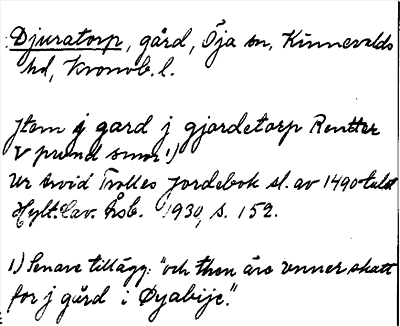 Djuratorp, gård, Öja sn, Kinnevalds
hd, Kronob. l.
Jtem j gard j gjordetorp Rentter
V pund smör 1)
Ur Arvid Trolles Jordebok sl. av 1490-talet
Hylt. Cav. Årsb. 1930, s. 152.
1) Senare tillägg: "och then äre unner skatt
for j gård i Øyabije."